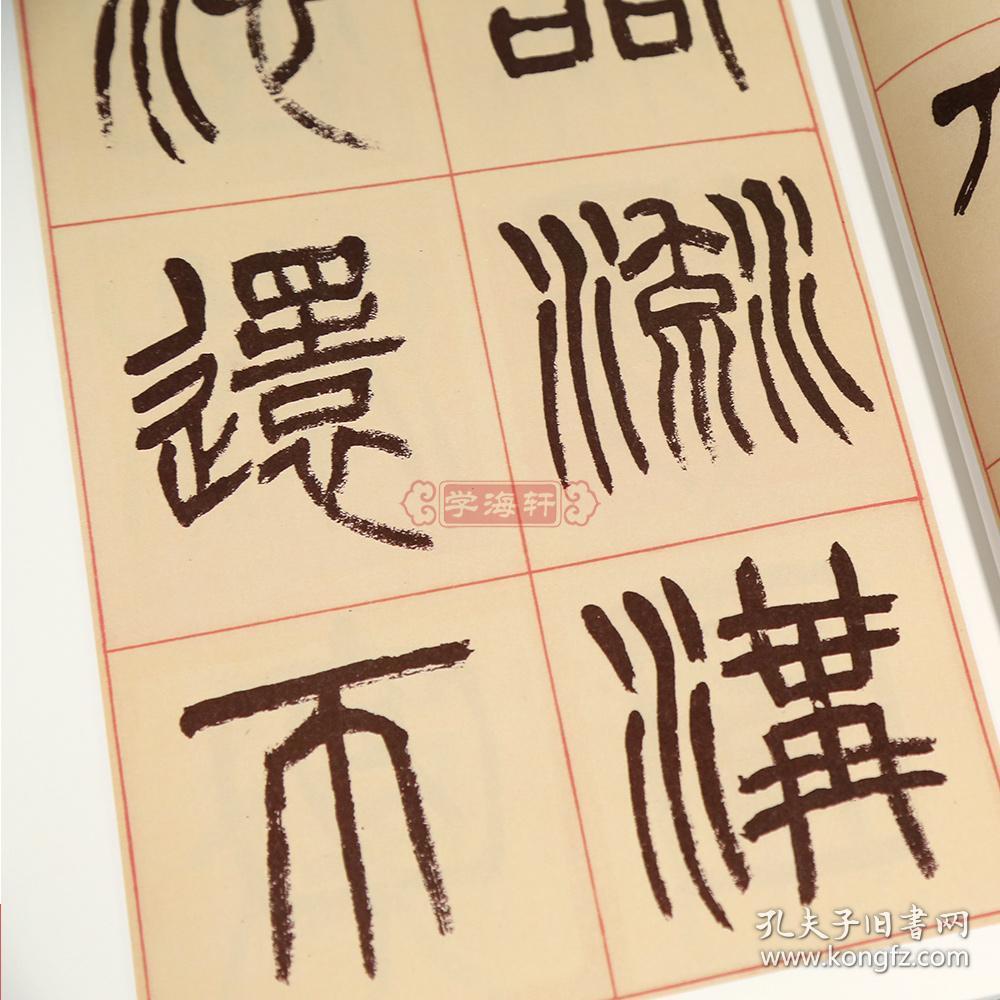 流溝
還不
学海轩
孔夫子旧书网
www.kongfz.com